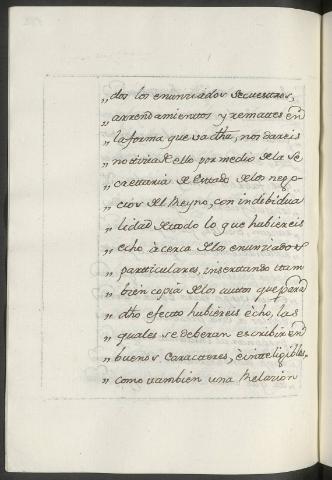 „dos los enunziados Secuestros,
„arrendamientos y remattes en
„la forma que va dha, nos dareis
„notizia de ello por medio de la Se
„crettaria de Estado de los nego
„cios del Reyno, con indebidua
„lidad de todo lo que hubiereis
„echo à cerca de los enunziados
„particulares, insertando tam
„bien copia de los autos que para
„dho efecto hubiereis echo, las
„quales se deberan escribir en
„buenos Caracteres, è inteligibles,
„como tambien una Relazion